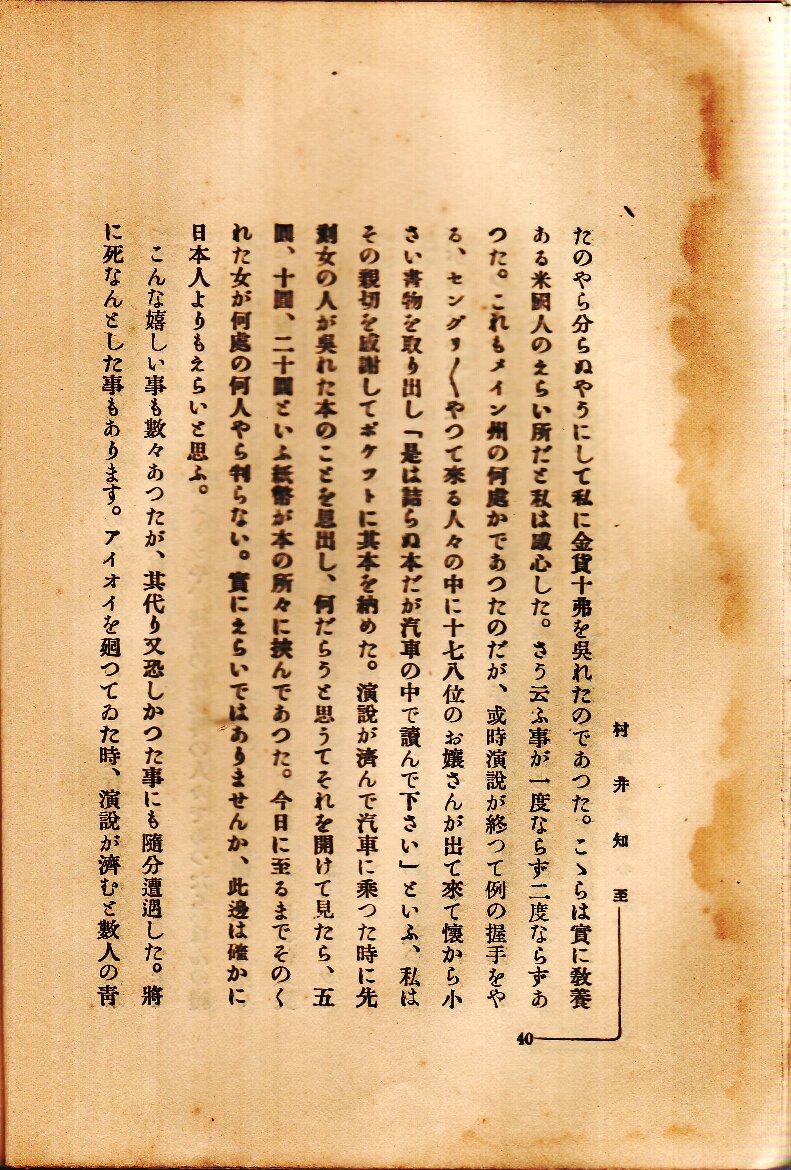 村井知至
40
たのやら分らぬやうにして私に金貨十弗を吳れたのであつた。こゝらは實に敎養
ある米國人のえらい所だと私は感心した。さう云ふ事が一度ならず二度ならずあ
つた。これもメイン州の何處かであつたのだが、或時演說が終つて例の握手をや
る、セングリ〳〵やつて來る人々の中に十七八位のお孃さんが出て來て懷から小
さい書物を取り出し「是は詰らぬ本だが汽車の中で讀んで下さい」といふ、私は
その親切を感謝してポケツトに其本を納めた。演說が濟んで汽車に乘つた時に先
刻女の人が吳れた本のことを思出し、何だらうと思うてそれを開けて見たら、五
圓、十圓、二十圓といふ紙幣が本の所々に挾んであつた。今日に至るまでそのく
れた女が何處の何人やら判らない。實にえらいではありませんか、此邊は確かに
日本人よりもえらいと思ふ。
こんな嬉しい事も數々あつたが、其代り又恐しかつた事にも隨分遭遇した。將
に死なんとした事もあります。アイオイを廻つてゐた時、演說が濟むと數人の靑